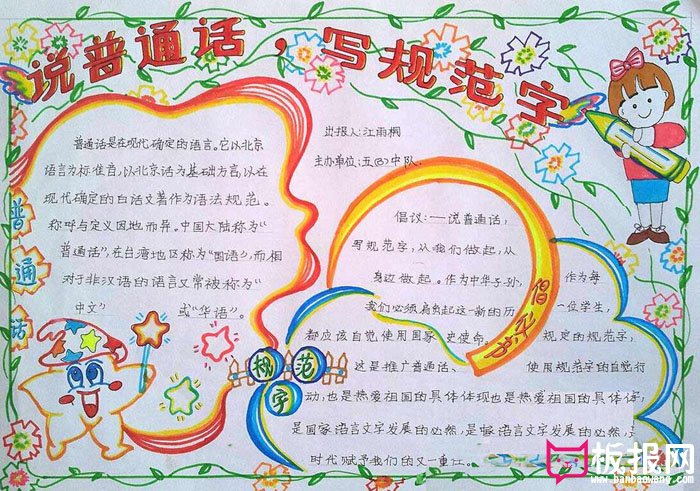 说普通话，写规范字
普通话
普通话是在现代确定的语言。它以北京
语言为标准音，以北京话为基础方言，以在
现代确定的白话文著作为语法规范。
称呼与定义因地而异。中国大陆称为“
普通话”，在台湾地区称为“国语”，而相
对于非汉语的语言又常被称为“
中文” 或“华语”。
出报人：江雨桐
主办单位：五（3）中队
倡议：——说普通话，
写规范字，从我们做起，从
身边做起。作为中华子孙，
我们必须肩负起这一新的历
史使命。
倡
规范
字
作为每
一位学生，
都应该自觉使用国家 规定的规范字，
这是推广普通话、 使用规范字的自觉行
动，也是热爱祖国的具体体现也是热爱祖国的具体体
是国家语言文字发展的必然，是国家语言文字发展的必然，
时代赋予我们的又一重任。
板报网
www.banbaowang.com